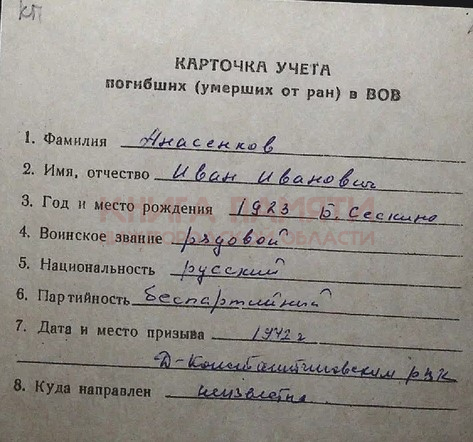 КП
КАРТОЧКА УЧЕТА
погибших (умерших от ран) в ВОВ
1. Фамилия Анасенков
2. Имя, отчество Иван Иванович
3. Год и место рождения 1923 Б Сескино
КНИГА ПАМЯТИ
4. Воинское звание рядовой
НИЖЕГОРОДСКОЙ ОБЛАСТИ
5. Национальность русский
6. Партийность беспартийный
7. Дата и место призыва 1942 г
Д-Константиновским рвк
8. Куда направлен неизвестно